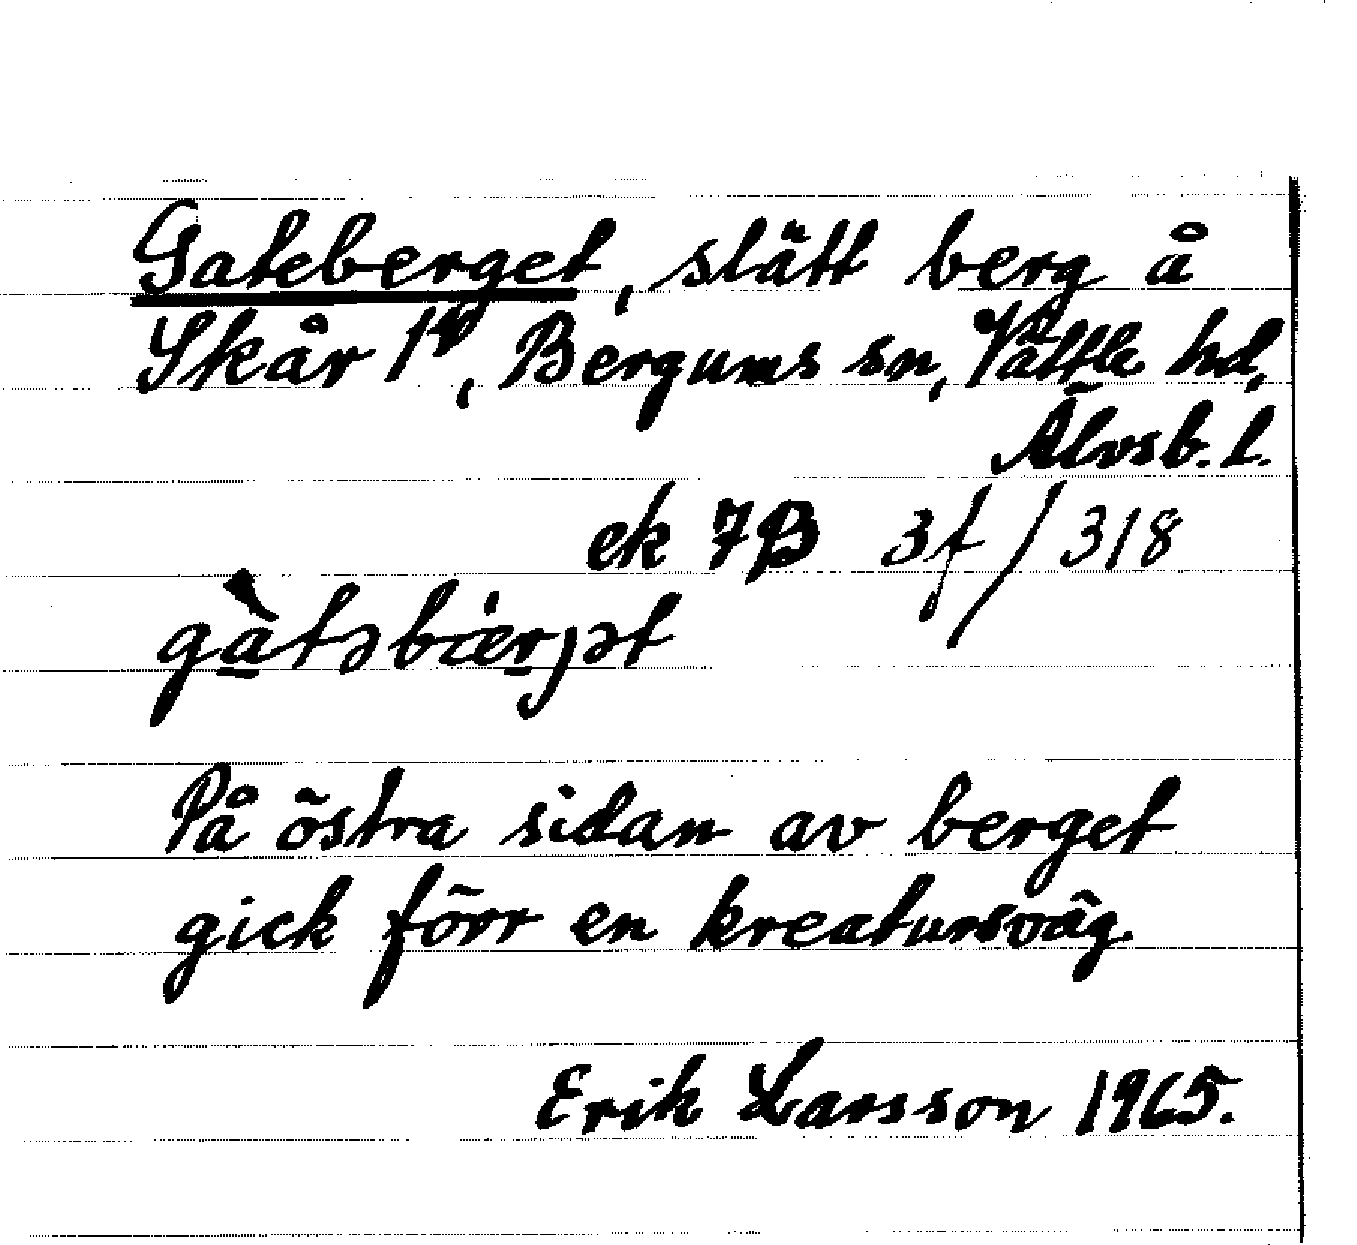 Gateberget, slätt berg å
Skår 1⁴, Bergums sn, Vättle hd,
Älvsb. l.
ek 7B 3f/318
gàtəbærjət
På östra sidan av berget
gick förr en kreatursväg.
Erik Larsson 1965.